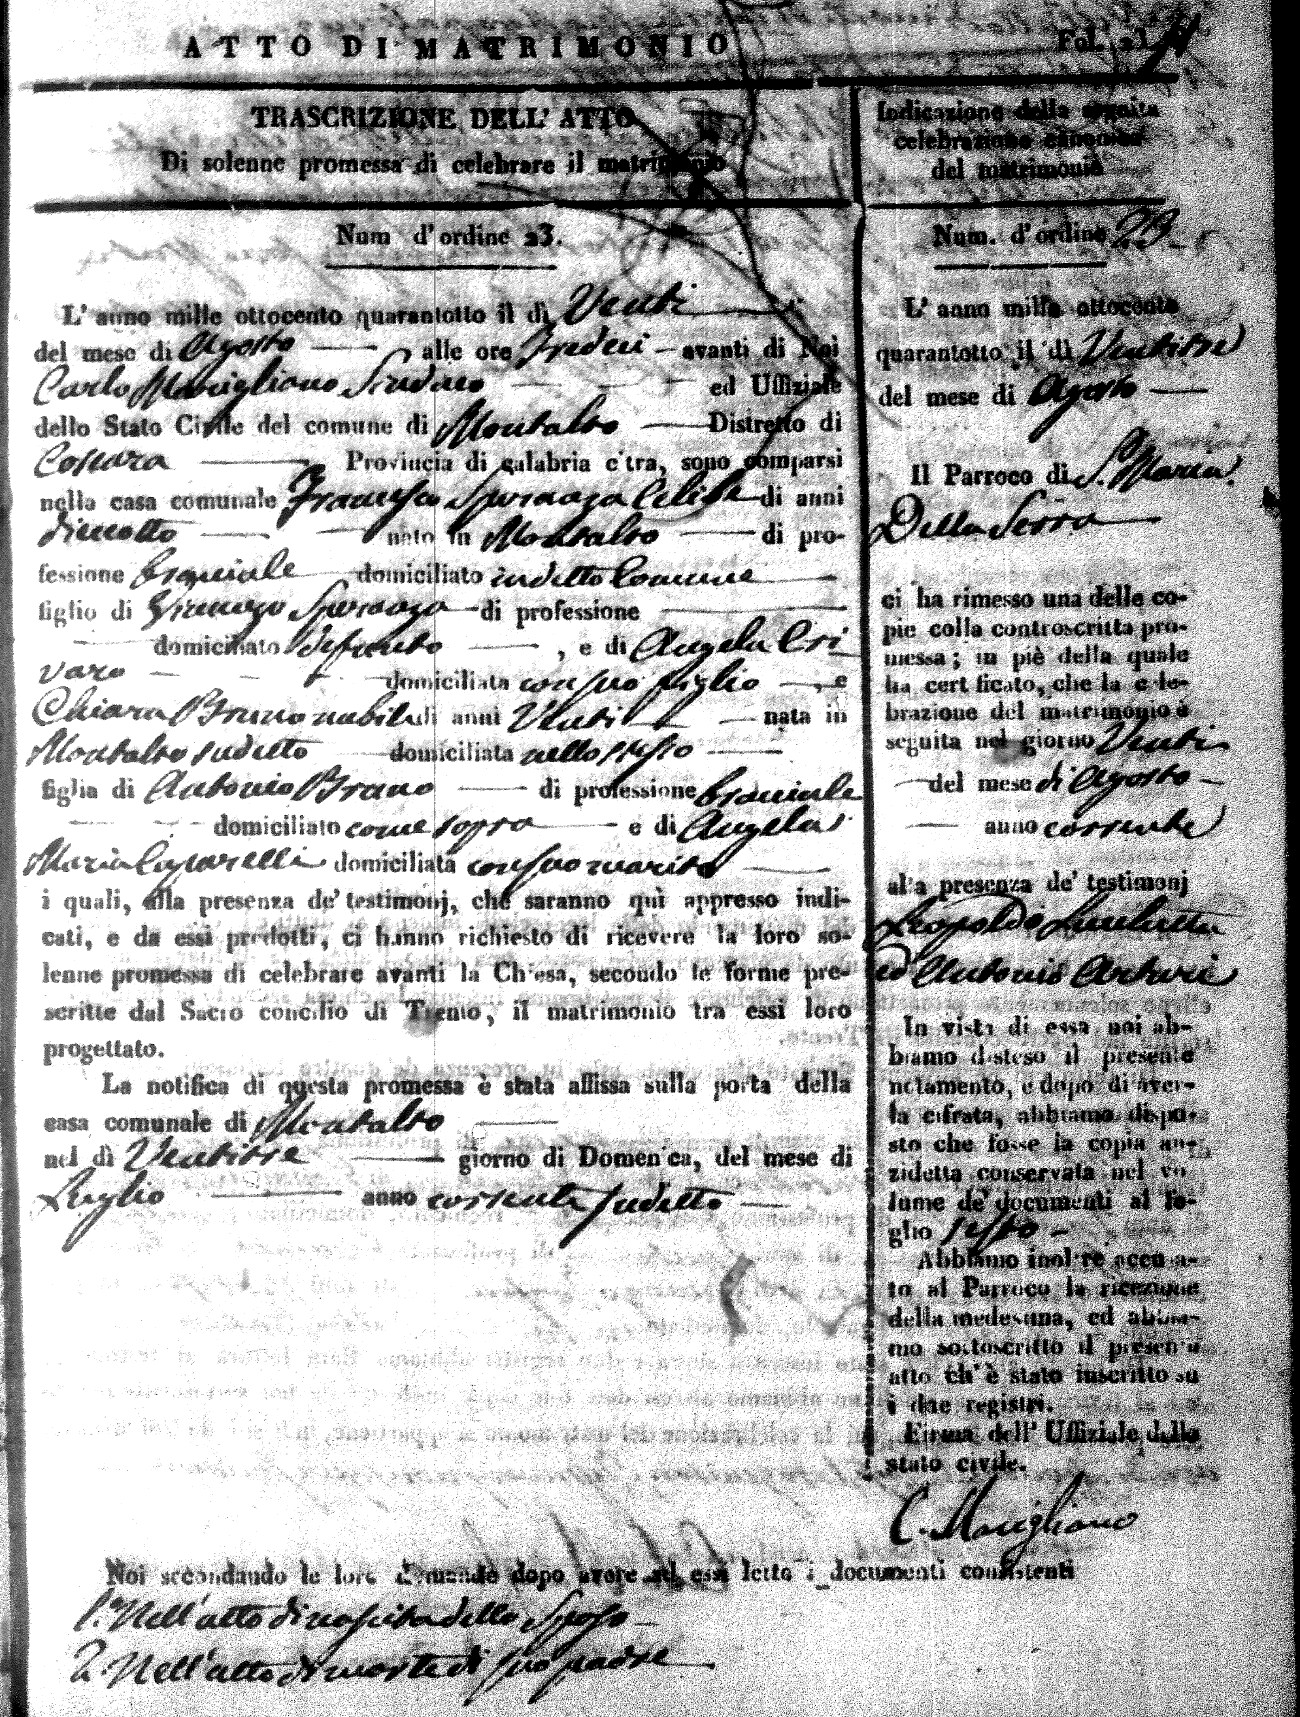 ATTO DI MATRIMONIO
Fol. 21
TRASCRIZIONE DELL' ATTO
Di solenne promessa di celebrare il matrimonio
Num d'ordine 23.
L' anno mille ottocento quarantotto il dì Venti
del mese di Agosto alle ore Tredeci avanti di Noi
Carlo Marigliano Sindaco ed Uffiziale
dello Stato Civile del comune di Montalto Distretto di
Cosenza Provincia di calabria citra, sono comparsi
nella casa comunale Francesco Speranza Celibe di anni
diecotto nato in Montalto di pro-
fessione bracciale domiciliato in detto Comune
figlio di Speranza di professione
domiciliato defunto , e di Angela Cri
varo domiciliata con suo figlio , e
Chiara Bruno nubile di anni Venti nata in
Montalto sudetto domiciliata nello stesso
figlia di Antonio Bruno di professione bracciale
domiciliato come sopra e di Angela
Maria Caparelli domiciliata con suo marito
i quali, alla presenza de' testimonj, che saranno quì appresso indi-
cati, e da essi prodotti, ci hanno richiesto di ricevere la loro so-
lenne promessa di celebrare avanti la Chiesa, secondo le forme pre-
scritte dal Sacro concilio di Trento, il matrimonio tra essi loro
progettato.
La notifica di questa promessa è stata affissa sulla porta della
casa comunale di Montalto
nel dì Ventitre giorno di Domenica, del mese di
Luglio anno corrente sudetto
Indicazione della seguita
celebrazione canonica
del matrimonio
Num. d'ordine 23
L' anno mille ottocento
quarantotto il dì Ventitre
del mese di Agosto
Il Parroco di S. Maria
Della Serra
ci ha rimesso una delle co-
pie colla controscritta pro-
messa; in piè della quale
ha certificato, che la cele-
brazione del matrimonio è
seguita nel giorno Venti
del mese di Agosto
anno corrente
alla presenza de' testimonj
Leopoldo
ed Antonio Arturi
In vista di essa noi ab-
biamo disteso il presente
notamento, e dopo di aver-
la cifrata, abbiamo dispo-
sto che fosse la copia an-
zidetta conservata nel vo-
lume de' documenti al fo-
glio sesto
Abbiamo inoltre accusa-
to al Parroco la ricezione
della medesima, ed abbia-
mo sottoscritto il presente
atto ch'è stato inscritto su
i due registri.
Firma dell' Uffiziale dello
stato civile.
C. Marigliano
Noi secondando le loro dimande dopo avere ad essi letto i documenti consistenti
1.° Nell'atto di nascita dello Sposo
2. Nell'atto di morte di suo padre